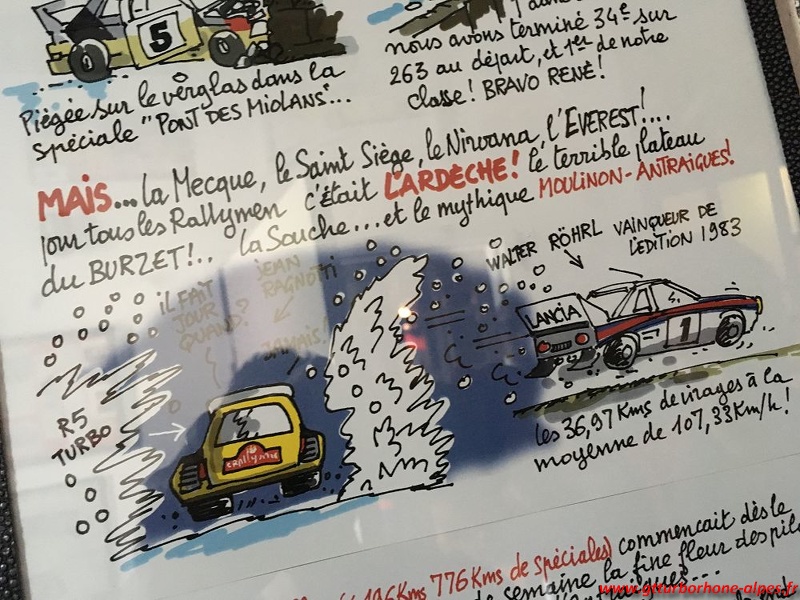 5
Piégée sur le verglas dans la
spéciale "PONT DES MIOLANS"...
nous avons terminé 34e sur
263 au départ, et 1er de notre
classe! BRAVO RENÉ!
MAIS... la Mecque, le Saint Siège, le Nirvana, l'EVEREST!...
pour tous les Rallymen c'était L'ARDÈCHE! le terrible plateau
du BURZET!.. la Souche... et le mythique MOULINON-ANTRAIGUES!
iL FAIT
JOUR
QUAND?
JEAN
RAGNOTTI
JAMAIS!
WALTER RÖHRL VAINQUEUR DE
L'EDITION 1983
LANCIA
1
R5
TURBO
les 36,97 Kms de virages à la
moyenne de 107,33 Km/h!
776 Kms de spéciales) commençait dès le
de semaine la fine fleur des
www.gtturborhone-alpes.fr